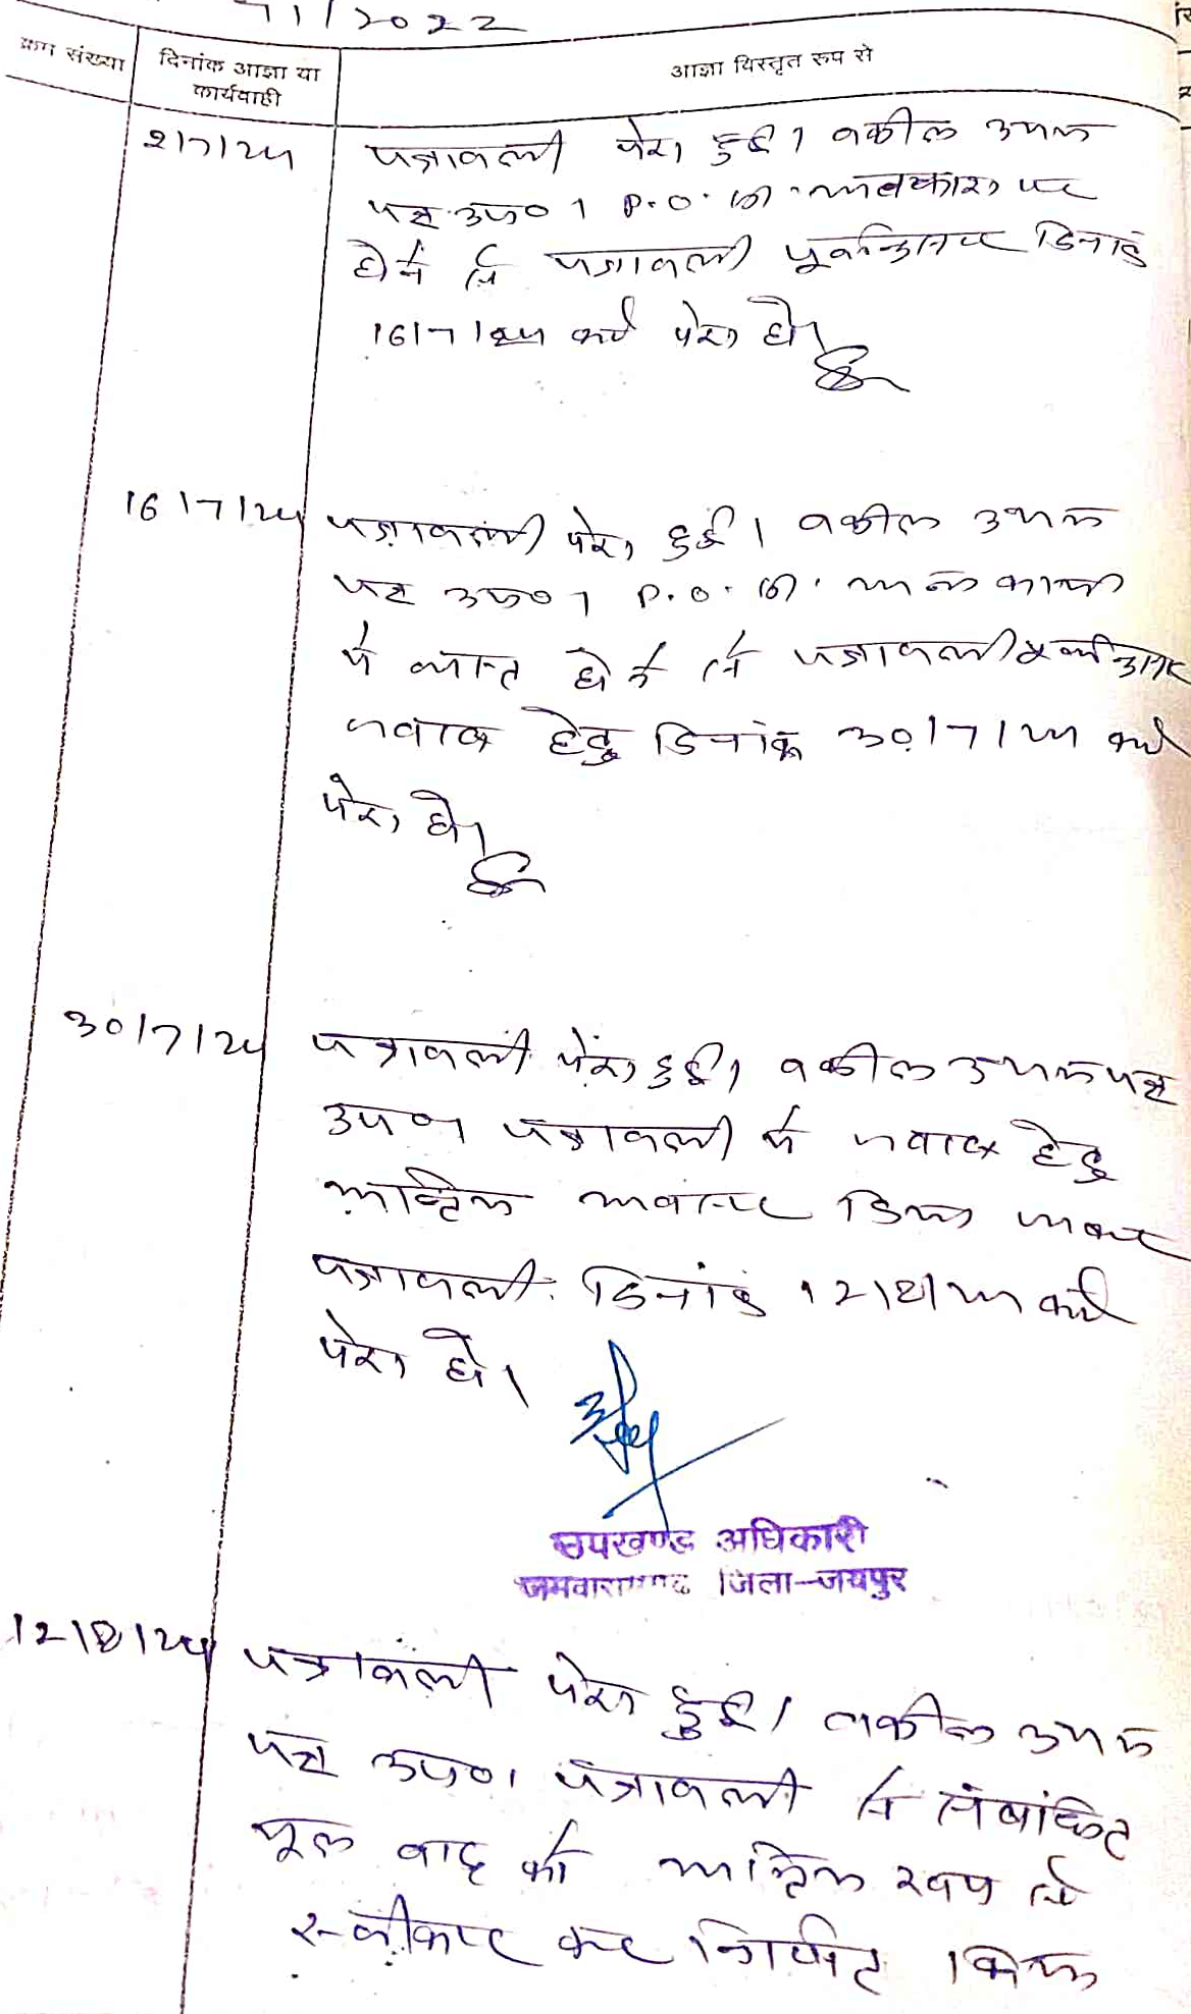 71/2022
क्रम संख्या
दिनांक आज्ञा या
कार्यवाही
आज्ञा विस्तृत रूप से
2/7/24
पत्रावली पेश हुई। वकील उभय
पक्ष उप०। P.O. के अवकाश पर
होने से पत्रावली पूर्वानुसार दिनांक
16/7/24 को पेश हो।
16/7/24
पत्रावली पेश हुई। वकील उभय
पक्ष उप०। P.O. के
में व्यस्त होने से पत्रावली
जवाब हेतु दिनांक 30/7/24 को
पेश हो।
30/7/24
पत्रावली पेश हुई। वकील उभय पक्ष
उप०। पत्रावली में जवाब हेतु
अन्तिम अवसर दिया जाकर
पत्रावली दिनांक 12/8/24 को
पेश हो।
उपखण्ड अधिकारी
जमवारामगढ जिला-जयपुर
12/8/24
पत्रावली पेश हुई। वकील उभय
पक्ष उप०। पत्रावली से संबंधित
मूल वाद को रूप से
स्वीकार कर निर्णित किया